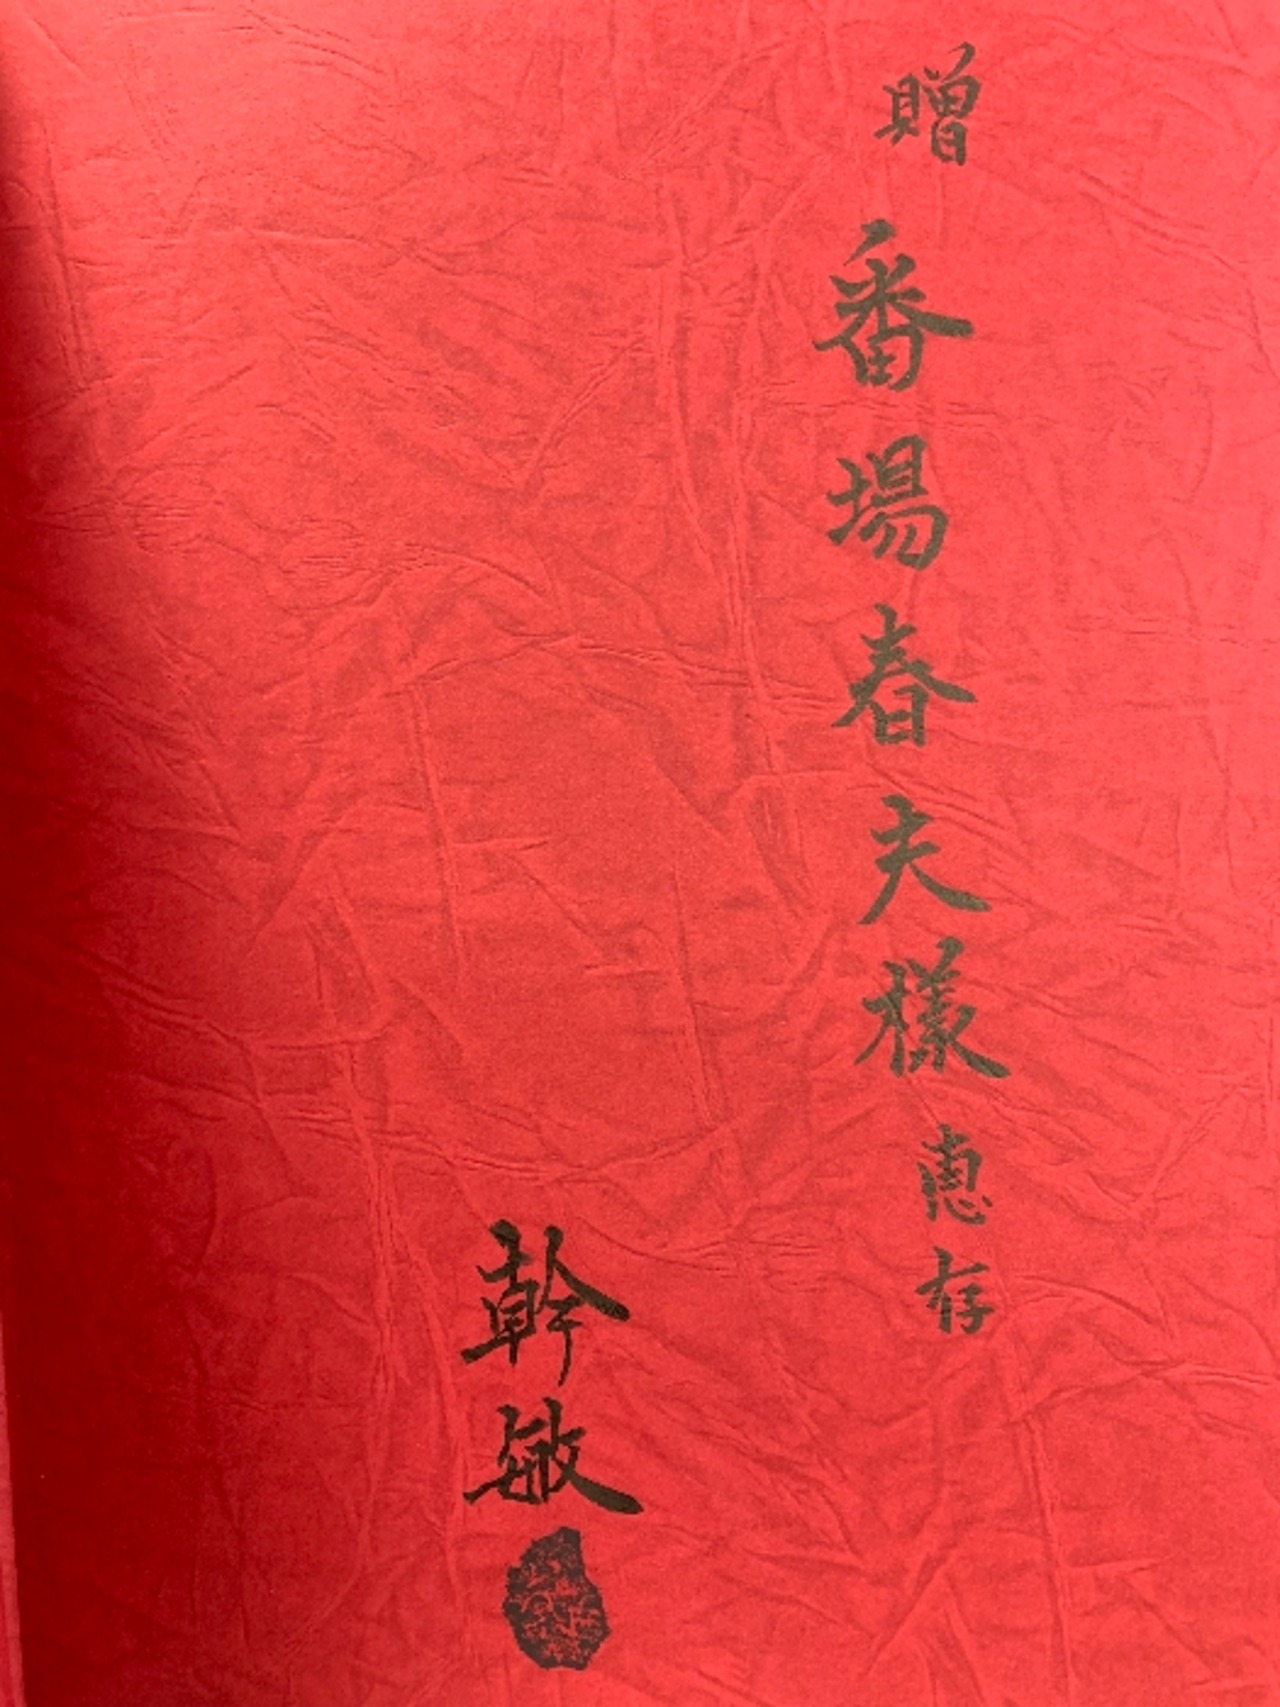 贈 番場春夫様 恵存
幹敏